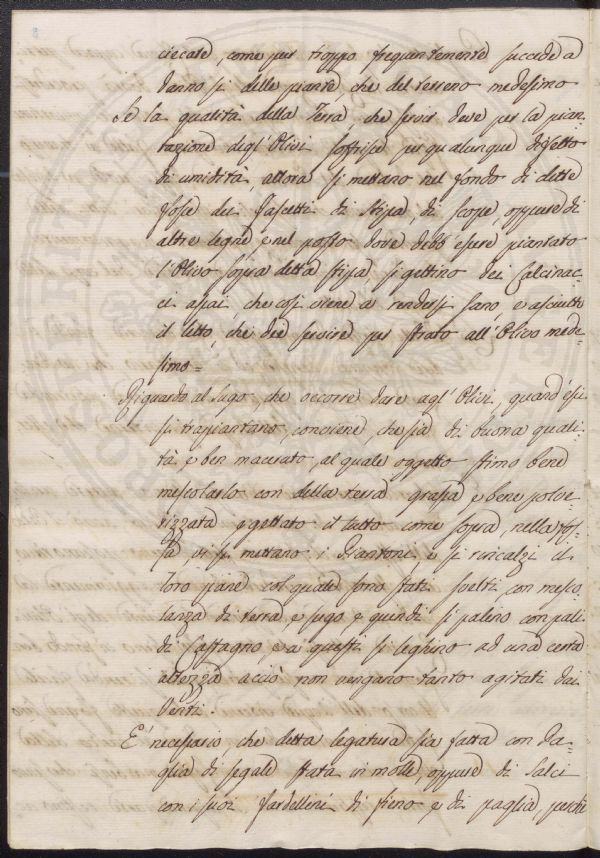 ciecate, come pur troppo frequentemente succede a
danno sì delle piante che del terreno medesimo
Se la qualità della Terra, che servir deve per la pian-
tazione degl'Olivi soffrisse per qualunque difetto
di umidità, allora si mettano nel fondo di dette
fosse dei fascetti di stipa, di scope, oppure di
altre legne, e nel posto dove debb'essere piantato
l'Olivo sopra detta stipa, si gettino dei Calcinac-
ci assai, che così viene a rendersi sano, e asciutto
il letto, che dee servire per strato all'Olivo mede-
simo=
Riguardo al sugo, che occorre dare agl'Olivi, quand'essi
si trapiantano, conviene, che sia di buona quali-
tà e ben macerato, al quale oggetto stimo bene
mescolarlo con della terra grassa, e bene polve-
rizzata e gettato il tutto come sopra, nella fos-
sa, vi si mettano i Piantoni, e si rincalzi il
loro pane col quale sono stati svelti, con mesco-
lanza di terra, e sugo, e quindi si palino con pali
di Castagno, e a questi si leghino ad una certa
altezza acciò non vengano tanto agitati dai
Venti.
E' necessario, che detta legatura sia fatta con Pa-
glia di segale stata in molle, oppure di Salci
con i suoi fardellini di fieno e di paglia, perchè